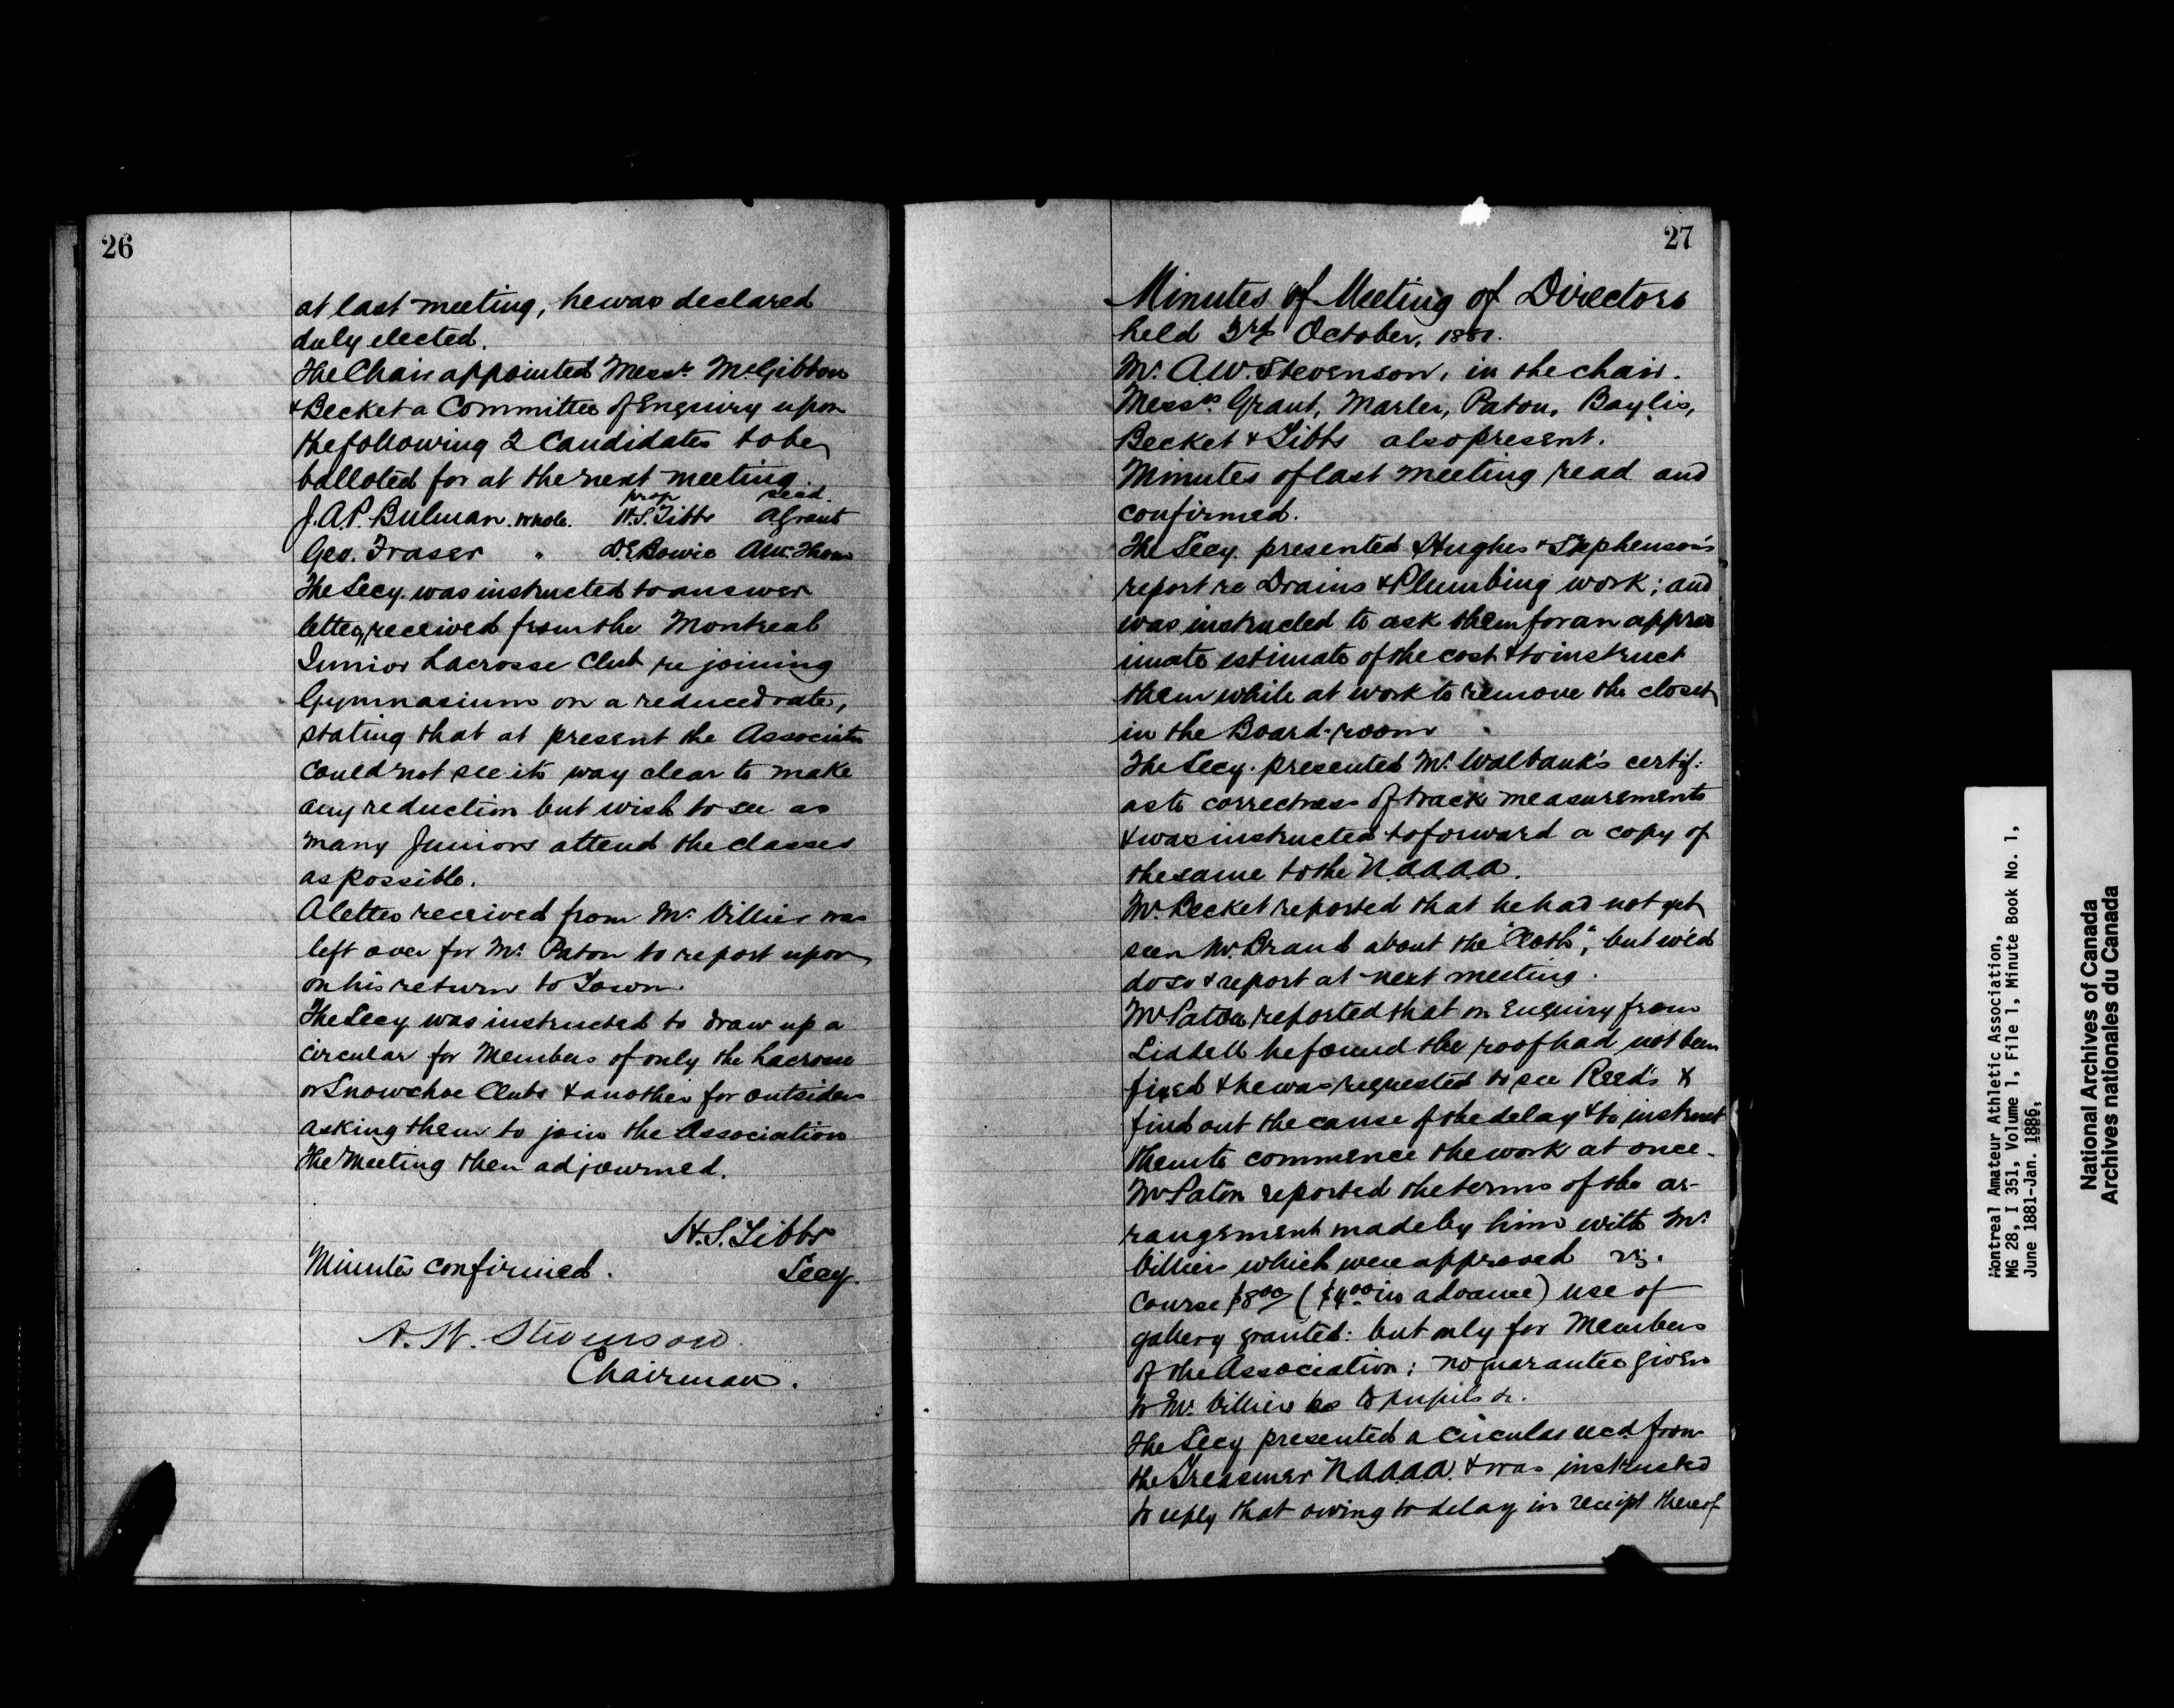 26
at last meeting, he was declared
duly elected.
The Chair appointed Messrs McGibbon
& Becket a Committee of Enquiry upon
the following 2 Candidates to be
balloted for at the next meeting.
prop secd.
J.A.P. Bulman. whole. H.S. Tibbs A Grant
Geo. Fraser " D.E. Bowie Thom
The Secy. was instructed to answer
letter received from the Montreal
Junior Lacrosse Club re joining
Gymnasium on a reduced rate,
stating that at present the Associatn
could not see its way clear to make
any reduction but wish to see as
many Juniors attend the classes
as possible.
A letter received from Mr. Villiers was
left over for Mr. Paton to report upon
on his return to Town.
The Secy was instructed to draw up a
circular for Members of only the Lacrosse
or Snowshoe Clubs & another for outsiders
asking them to join the Association
The Meeting then adjourned.
H.S. Tibbs
Secy.
Minutes confirmed.
A. W. Stevenson.
Chairman.
27
Minutes of Meeting of Directors
held 3rd October, 1881.
Mr. A.W. Stevenson, in the chair.
Messrs. Grant, Marler, Paton, Baylis,
Becket & Tibbs also present.
Minutes of last meeting read and
confirmed.
The Secy. presented Hughes & Stephenson's
report re Drains & Plumbing work; and
was instructed to ask them for an approx
imate estimate of the cost & to instruct
them while at work to remove the closet
in the Board-room
The Secy. presented Mr. Walbank's certif:
as to correctness of track measurements
& was instructed to forward a copy of
the same to the N.A.A.A.A.
Mr. Becket reported that he had not yet
seen Mr. Brand about the "Cloth", but wd
do so & report at next meeting.
Mr. Paton reported that on Enquiry from
Liddell he found the roof had not been
fixed & he was requested to see Reed's &
find out the cause of the delay & to instruct
them to commence the work at once.
Mr Paton reported the terms of the ar-
rangement made by him with Mr.
Villiers which were approved viz.
Course $8.00 ($4.00 in advance) use of
gallery granted: but only for Members
of the Association; no guarantee given
to Mr. Villiers as to pupils &c.
The Secy presented a circular recd from
the Treasurer N.A.A.A.A. & was instructed
to reply that owing to delay in receipt thereof
Montreal Amateur Athletic Association,
MG 28, I 351, Volume 1, File 1, Minute Book No. 1,
June 1881-Jan. 1886,
National Archives of Canada
Archives nationales du Canada